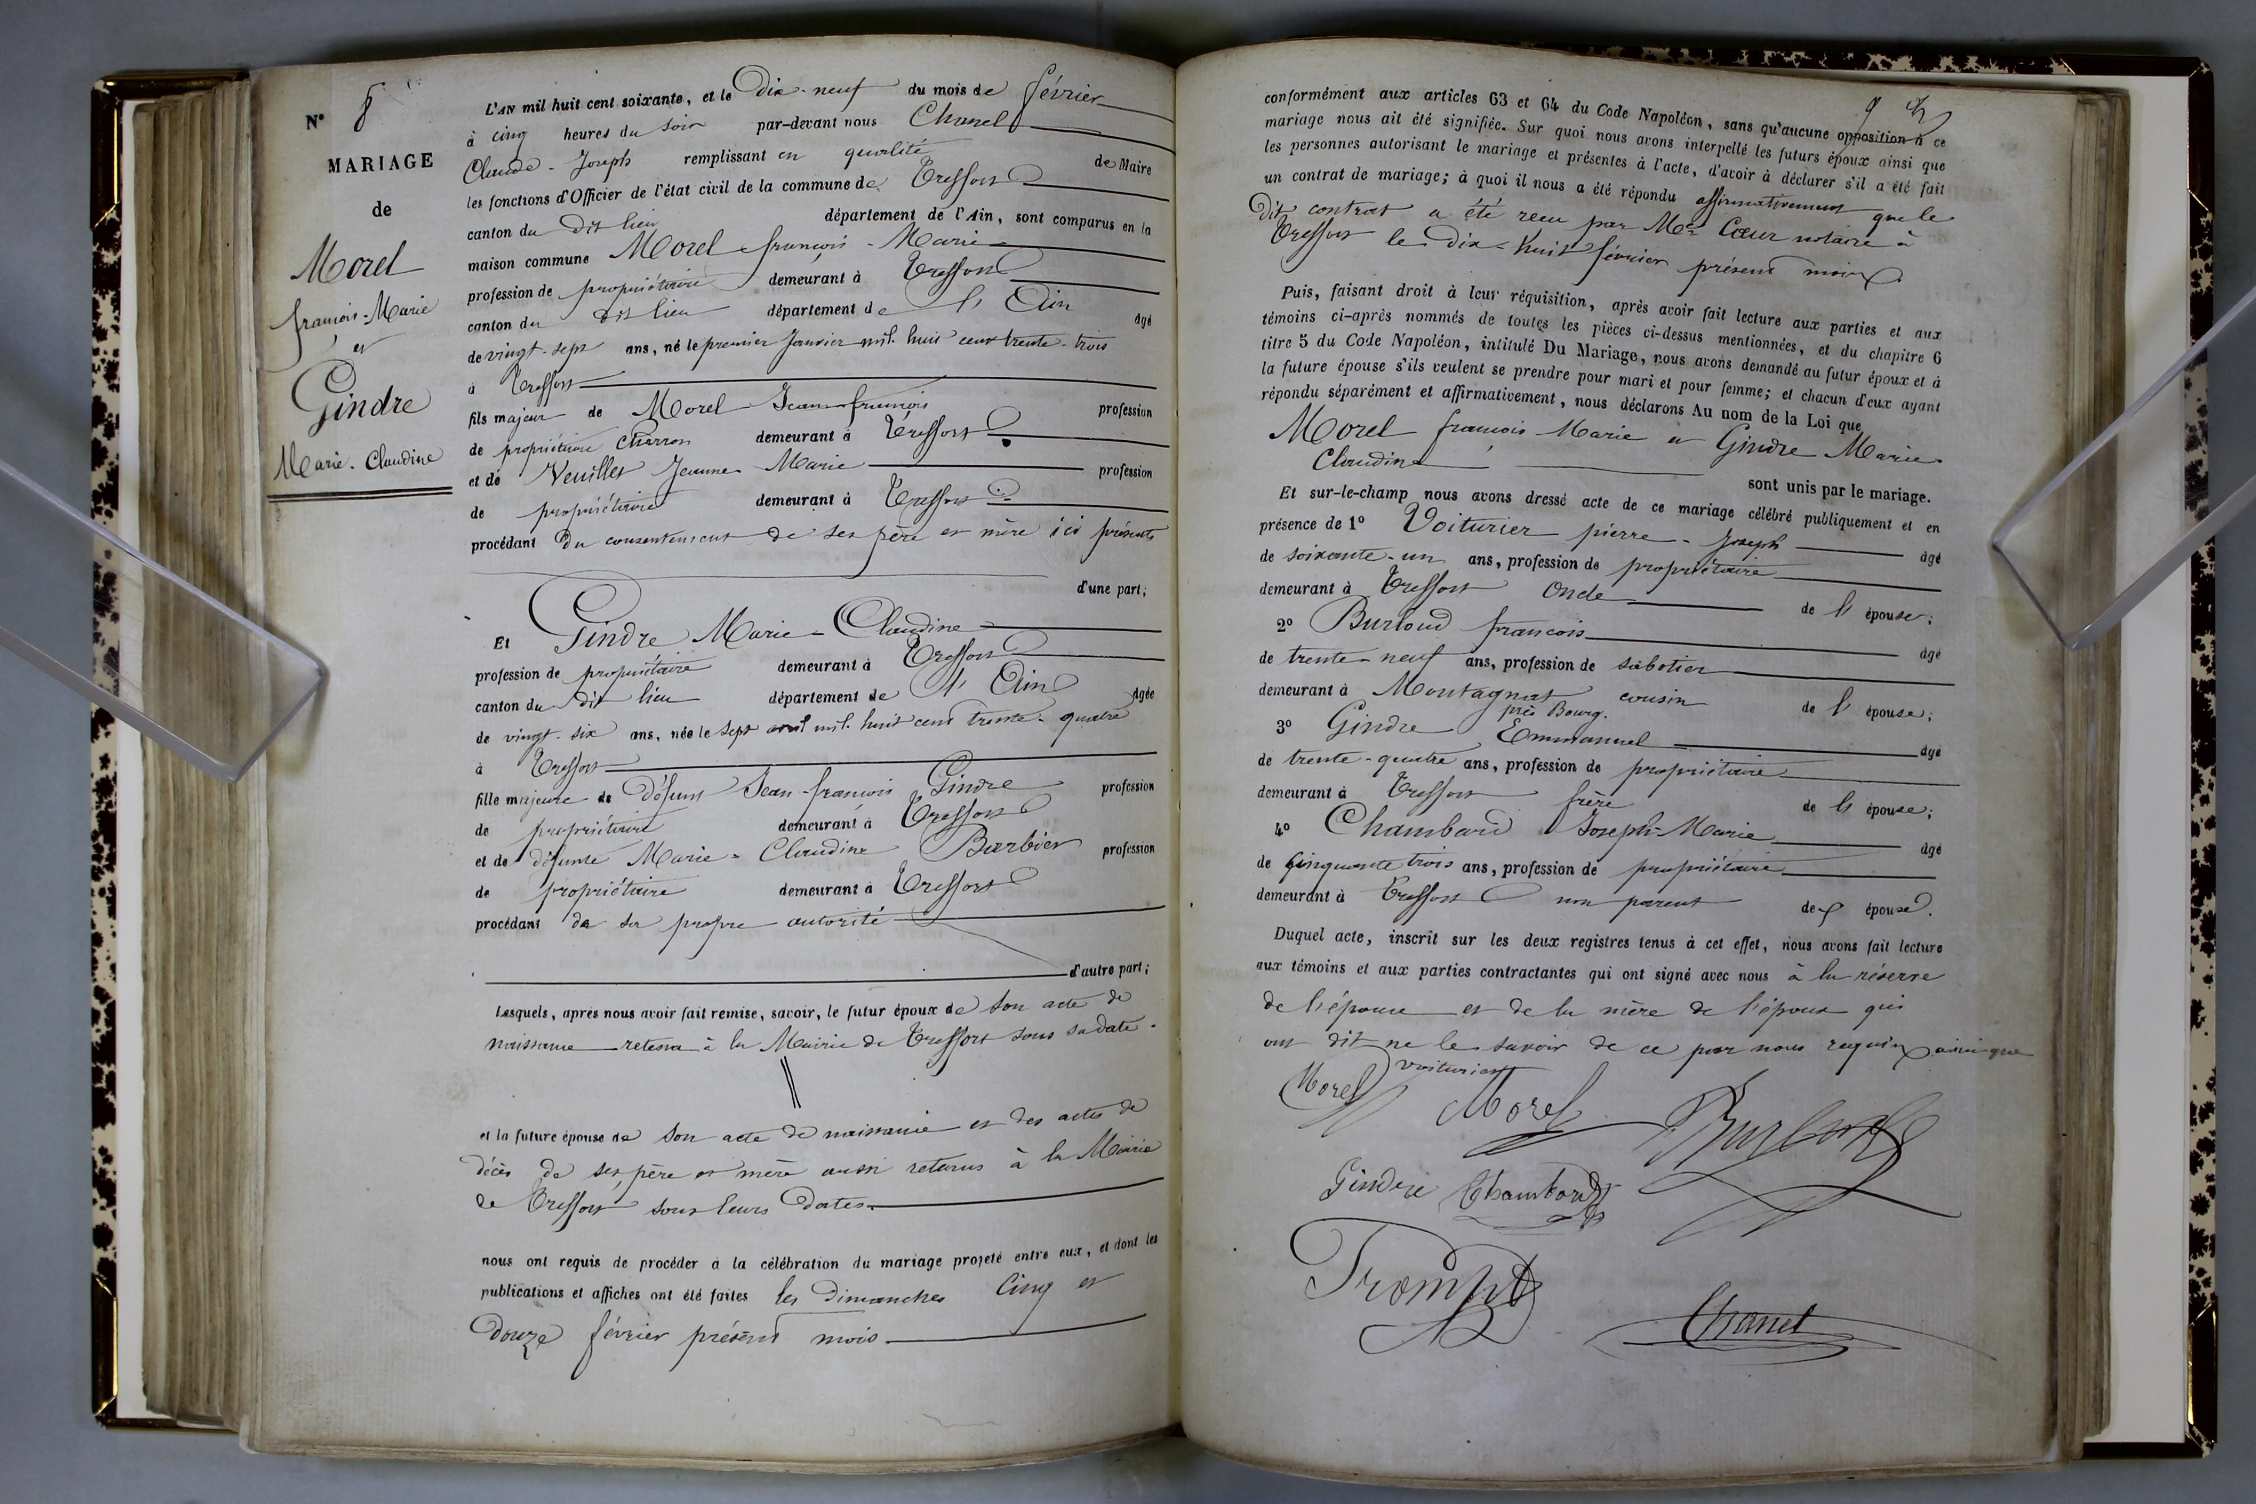 N° 8
MARIAGE
de
Morel
francois-Marie
et
Gindre
Marie-Claudine
L'AN mil huit cent soixante, et le Dix-neuf du mois de février
à cinq heures du soir par-devant nous Chanel
Claude-Joseph remplissant en qualité de Maire
les fonctions d'Officier de l'état civil de la commune de Treffort
canton du dit lieu département de l'Ain, sont comparus en la
maison commune Morel francois-Marie
profession de propriétaire demeurant à Treffort
canton du dit lieu département de l'Ain agé
de vingt-sept ans, né le premier Janvier mil huit cent trente-trois
à Treffort
fils majeur de Morel Jean-francois profession
de propriétaire Charron demeurant à Treffort
et de Veuillet Jeanne-Marie profession
de propriétaire demeurant à Treffort
procédant du consentement de ses père et mère ici présents
d'une part;
Et Gindre Marie-Claudine
profession de propriétaire demeurant à Treffort
canton du dit lieu département de l'Ain agée
de vingt-six ans, née le sept avril mil huit cent trente-quatre
à Treffort
fille majeure de défunt Jean-francois Gindre profession
de propriétaire demeurant à Treffort
et de défunte Marie-Claudine Barbier profession
de propriétaire demeurant à Treffort
procédant de sa propre autorité
d'autre part;
Lesquels, après nous avoir fait remise, savoir, le futur époux de son acte de
naissance retenu à la Mairie de Treffort sous sa date.
et la future épouse de son acte de naissance et des actes de
décès de ses père et mère aussi retenus à la Mairie
de Treffort sous leurs dates.
nous ont requis de procéder à la célébration du mariage projeté entre eux, et dont les
publications et affiches ont été faites les dimanches Cinq et
douze février présent mois
9
conformément aux articles 63 et 64 du Code Napoléon, sans qu'aucune opposition à ce
mariage nous ait été signifiée. Sur quoi nous avons interpellé les futurs époux ainsi que
les personnes autorisant le mariage et présentes à l'acte, d'avoir à déclarer s'il a été fait
un contrat de mariage; à quoi il nous a été répondu affirmativement que le
dit contrat a été recu par Me Cœur notaire à
Treffort le dix-huit février présent mois
Puis, faisant droit à leur réquisition, après avoir fait lecture aux parties et aux
témoins ci-après nommés de toutes les pièces ci-dessus mentionnées, et du chapitre 6
titre 5 du Code Napoléon, intitulé Du Mariage, nous avons demandé au futur époux et à
la future épouse s'ils veulent se prendre pour mari et pour femme; et chacun d'eux ayant
répondu séparément et affirmativement, nous déclarons Au nom de la Loi que
Morel francois Marie et Gindre Marie
Claudine sont unis par le mariage.
Et sur-le-champ nous avons dressé acte de ce mariage célébré publiquement et en
présence de 1° Voiturier pierre-Joseph agé
de soixante-un ans, profession de propriétaire
demeurant à Treffort Oncle de l'épouse;
2° Burloud francois agé
de trente-neuf ans, profession de sabotier
demeurant à Montagnat près Bourg. cousin de l'épouse;
3° Gindre Emmanuel agé
de trente-quatre ans, profession de propriétaire
demeurant à Treffort frère de l'épouse;
4° Chambard Joseph-Marie agé
de Cinquante trois ans, profession de propriétaire
demeurant à Treffort non parent des épouse.
Duquel acte, inscrit sur les deux registres tenus à cet effet, nous avons fait lecture
aux témoins et aux parties contractantes qui ont signé avec nous à la réserve
de l'épouse et de la mère de l'époux qui
ont dit ne le savoir de ce par nous requis ainsi que
Voiturier
Morel Morel Burloud
Gindre Chambard
Chanel